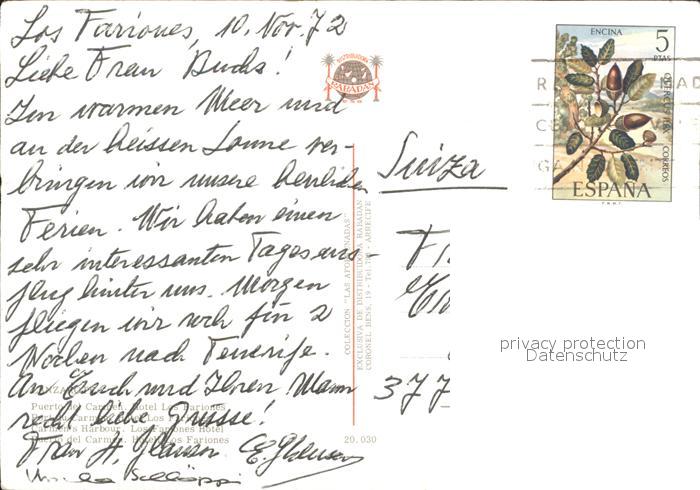 Los Fariones, 10. Nov. 72
Liebe Frau Buchs!
Im warmen Meer und
an der heissen Sonne ver-
bringen wir unsere herrlichen
Ferien. Wir haben einen
sehr interessanten Tagesaus-
flug hinter uns. Morgen
fliegen wir noch für 2
Wochen nach Tenerife.
An Euch und Ihren Mann
recht liebe Grüsse!
Frau H.
Puerto del Carmen. Hotel Los Fariones
Carmen's Harbour. Los Fariones Hotel
Puerto del Carmen. Hotel Los Fariones
20.030
DISTRIBUIDORA
RABADAN
COLECCION "LAS AFORTUNADAS"
EXCLUSIVA DE DISTRIBUIDORA RABADAN
CORONEL BENS, 19 - ARRECIFE
Suiza
377
ENCINA
5
PTAS
QUERCUS ILEX
CORREOS
ESPAÑA
F.N.M.T.
privacy protection
Datenschutz